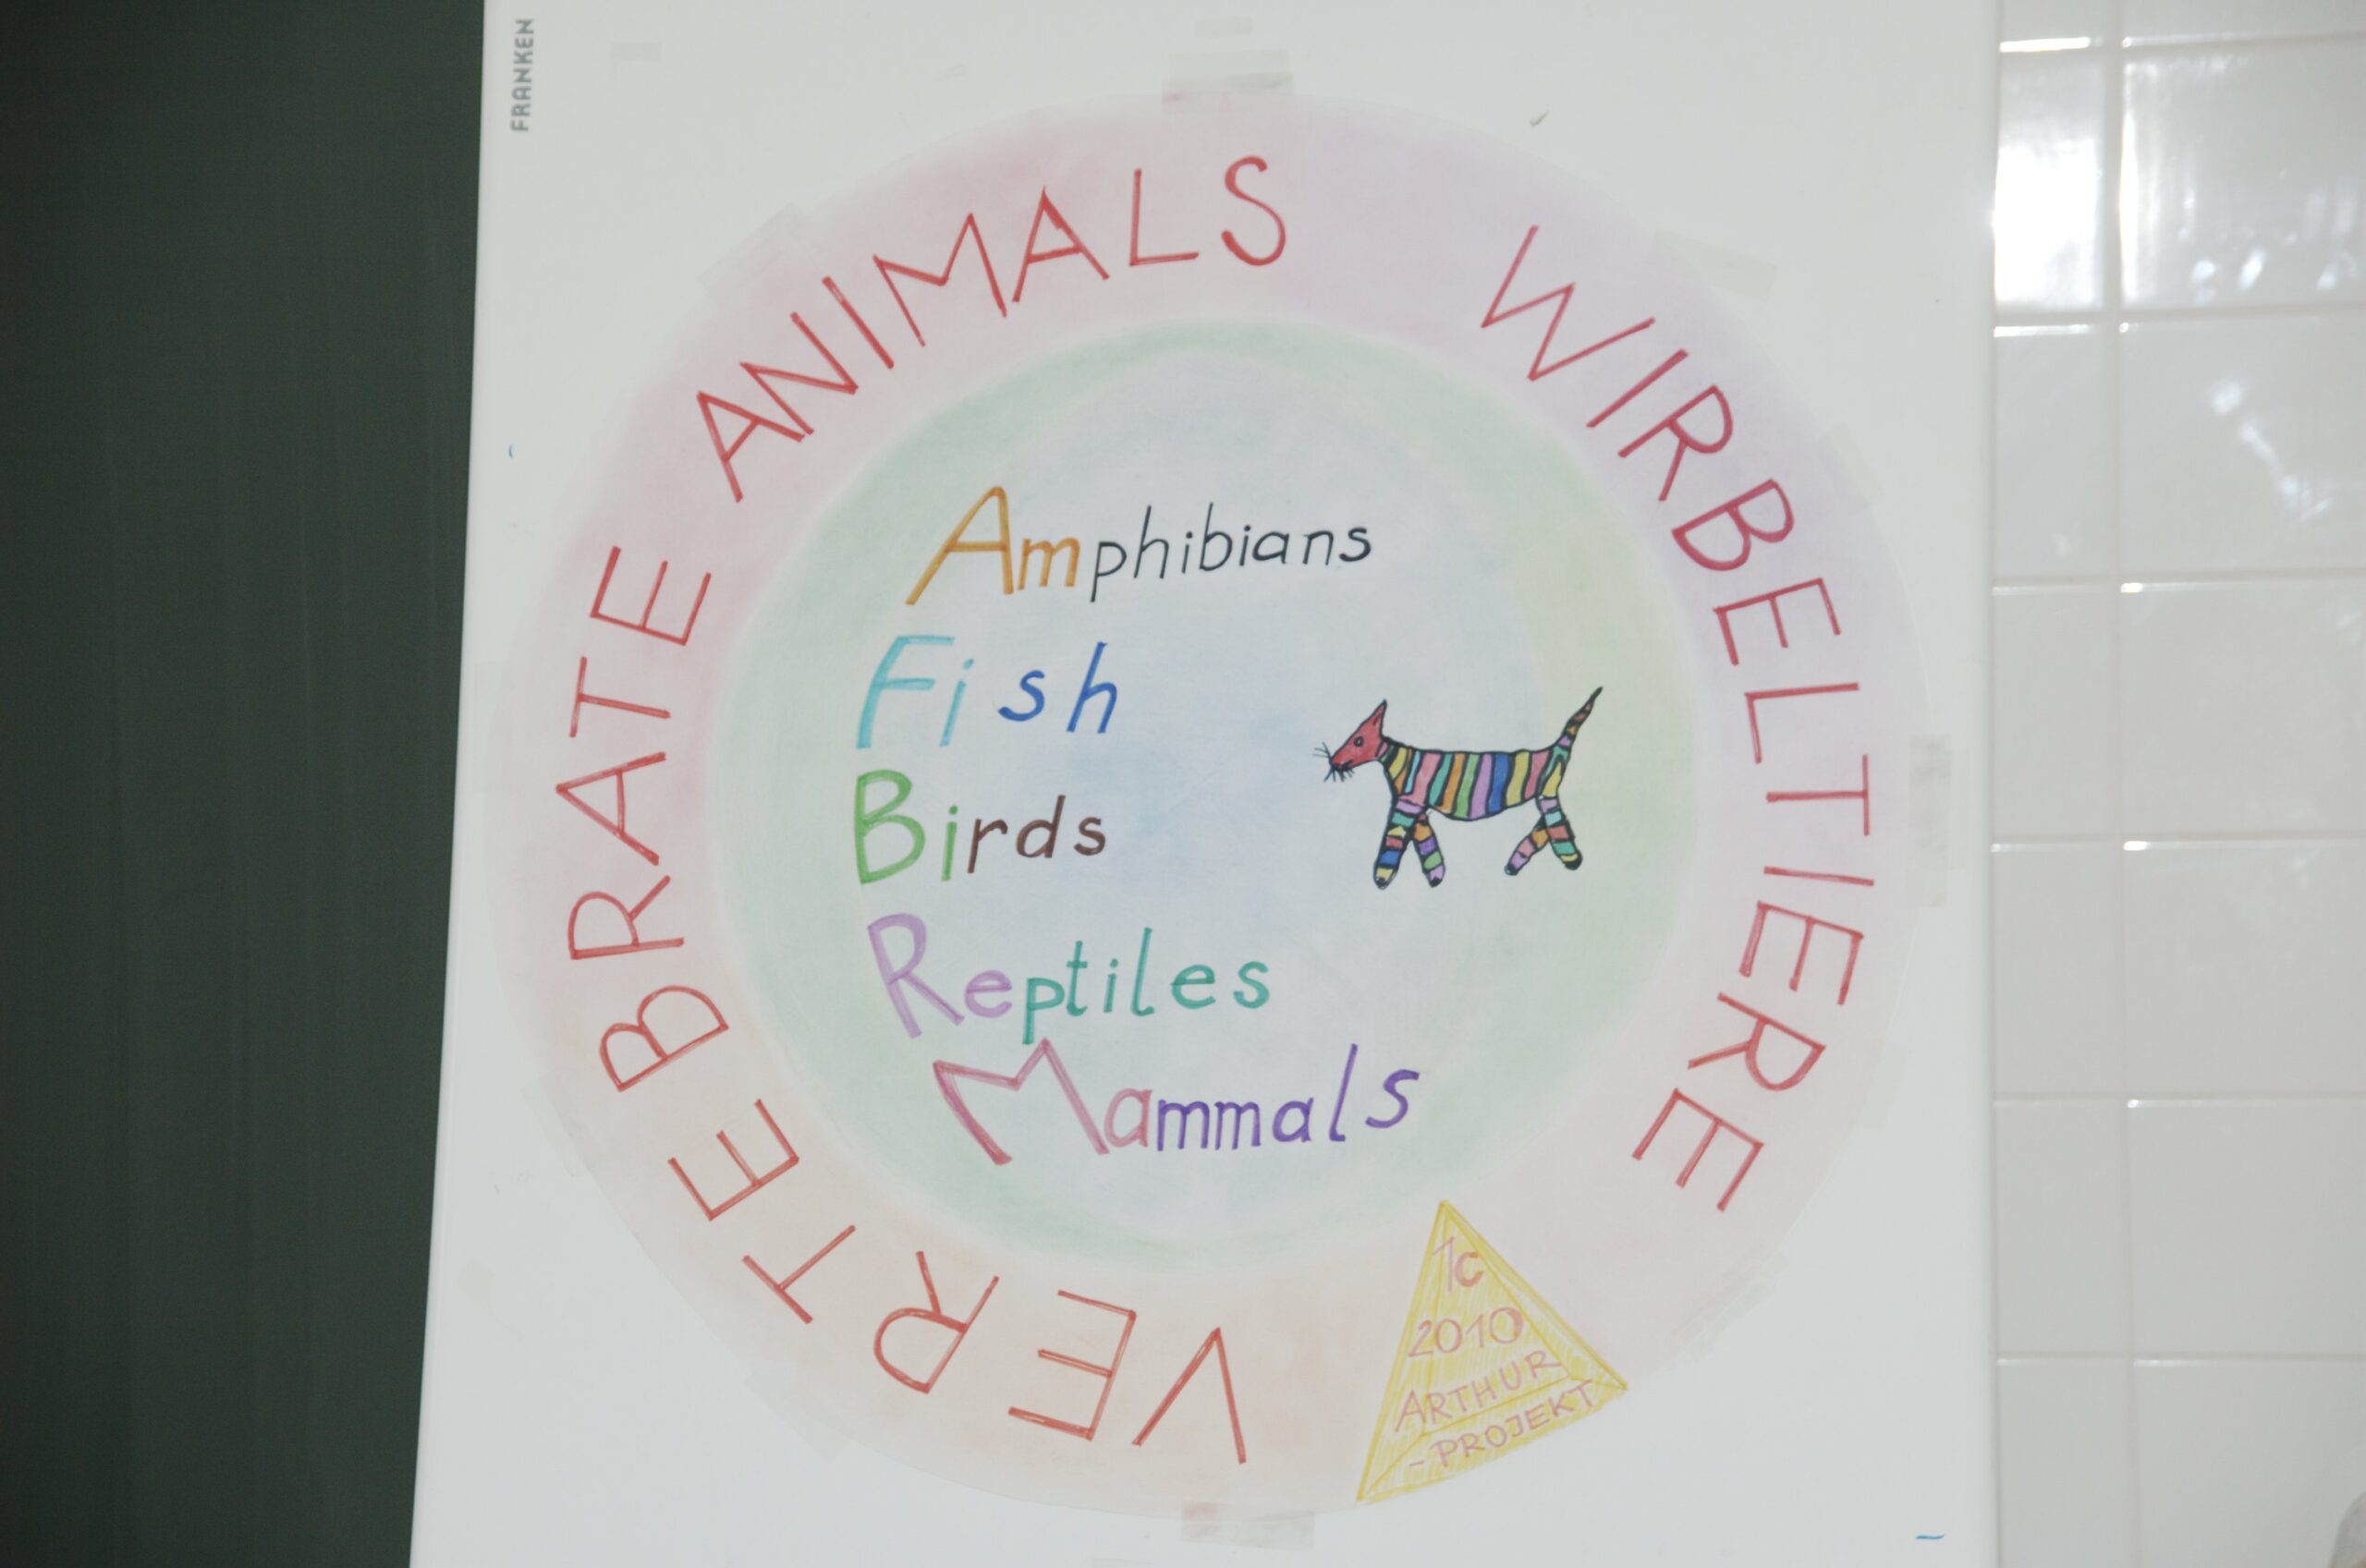 FRANKEN
VERTEBRATE ANIMALS
WIRBELTIERE
Amphibians
Fish
Birds
Reptiles
Mammals
1c
2010
ARTHUR
-PROJEKT